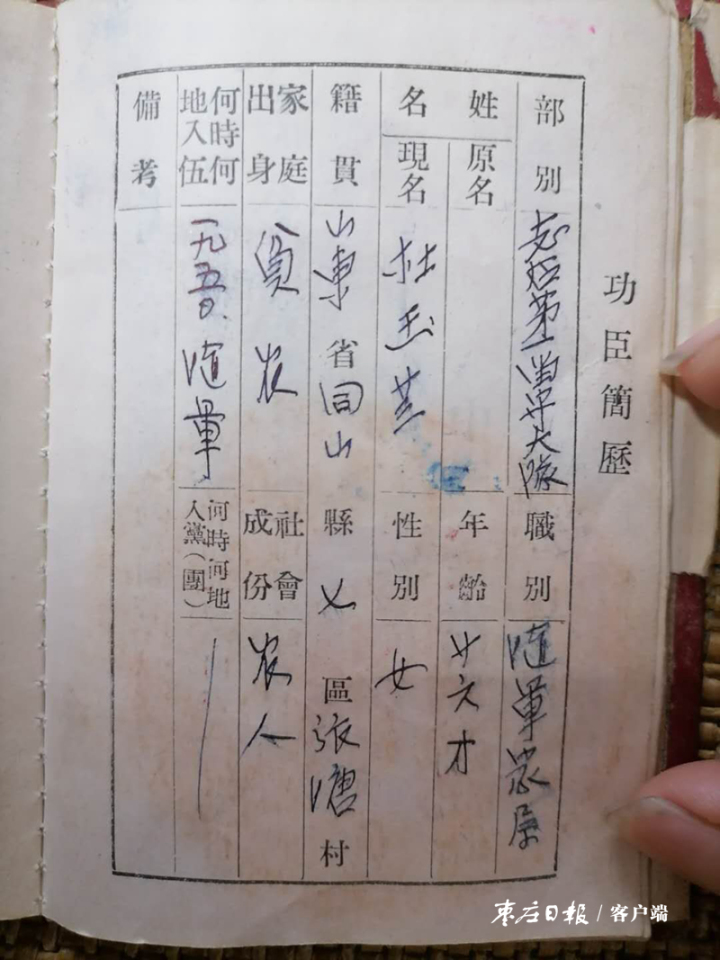 功臣簡歷
部別 第一留守大隊 職別 随軍家屬
姓名 原名 年齡 廿六才
現名 杜玉 性別 女
籍貫 山東省山縣區張塘村
家庭出身 貧农 社會成份 农人
何時何地入伍 一九五〇.随軍 何時何地入黨(團)
備考
枣庄日报/客户端